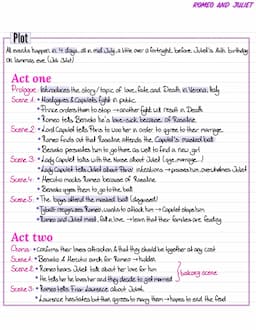 ROMEO AND JULIET
Plot
All events happen in 4 days, all in mid July, a little over a fortnight before Juliet's 14th birthday
on Lammas eve. (31st July)
Act one
Prologue: Introduces the story / topic of love, fate and Death in Verona, Italy
Scene 1: Montagues & Capulets fight in public
Prince orders them to stop → another fight will result in Death
Romeo tells Benvolio he's love-sick because of Rosaline
Scene 2: Lord Capulet tells Paris to woo her in order to agree to their marriage.
Romeo finds out that Rosaline attends the Capulet's masked ball
Benvolio persuades him to go there, as well to find a new girl
Scene 3: Lady Capulet talks with the Nurse about Juliet (age, marriage...)
Lady Capulet tells Juliet about Paris' intentions → praises him, overwhelms Juliet
Scene 4: Mercutio mocks Romeo because of Rosaline
Benvolio urges them to go to the ball
Scene 5: The boys attend the masked ball (disguised)
Tybalt recognizes Romeo, wants to attack him → Capulet stops him
Romeo and Juliet meet, fall in love → learn that their families are feuding
Act two
Chorus: confirms their lovers attraction & that they should be together at any cost
Scene 1: Benvolio & Mercutio search for Romeo → hidden
Scene 2: Romeo hears Juliet talk about her love for him
He tells her he loves her and they decide to get married
balcony scene
Scene 3: Romeo tells Friar Laurence about Juliet
Laurence hesitates but then agrees to marry them → hopes to end the feud